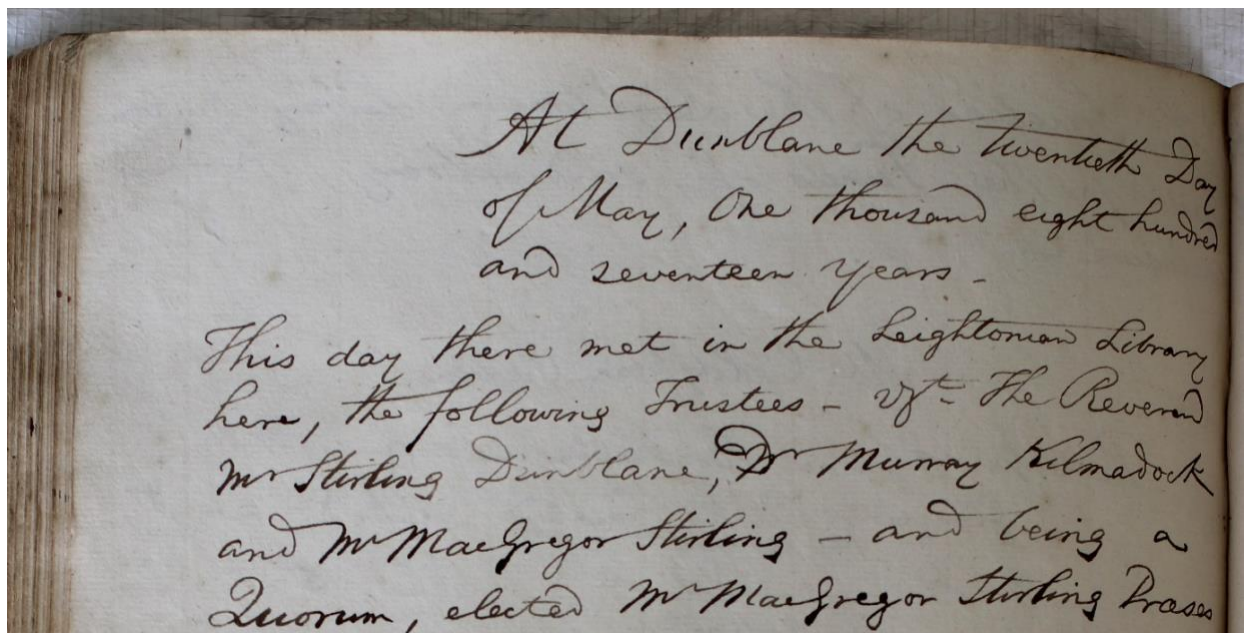 At Dunblane the twentieth Day
of May, One thousand eight hundred
and seventeen years -
This day there met in the Leightonian Library
here, the following Trustees - vizt- The Reverend
Mr Stirling Dunblane, Dr Murray Kilmadock
and Mr MacGregor Stirling - and being a
Quorum, elected Mr MacGregor Stirling Præses